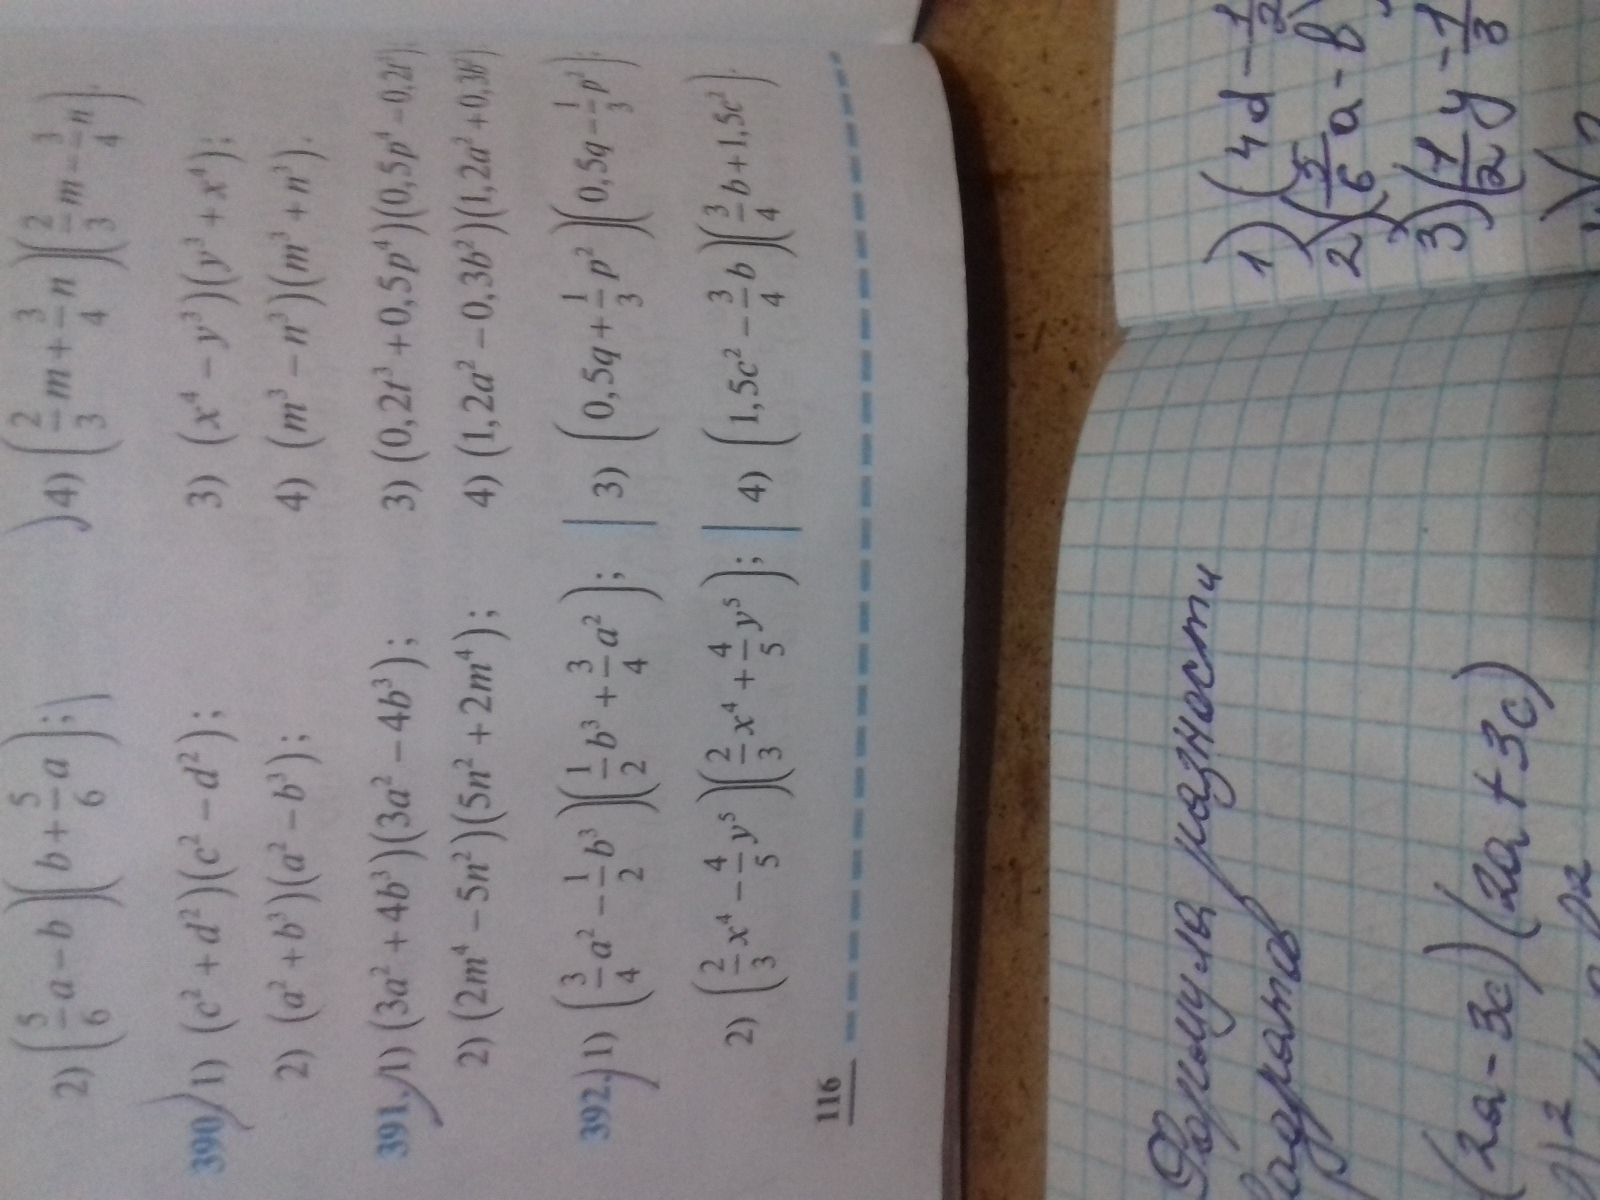 2) (5/6 a − b)(b + 5/6 a); 4) (2/3 m + 3/4 n)(2/3 m − 3/4 n).
390. 1) (c² + d²)(c² − d²); 3) (x⁴ − y³)(y³ + x⁴);
2) (a² + b³)(a² − b³); 4) (m³ − n³)(m³ + n³).
391. 1) (3a² + 4b³)(3a² − 4b³); 3) (0,2t³ + 0,5p⁴)(0,5p⁴ − 0,2t³);
2) (2m⁴ − 5n²)(5n² + 2m⁴); 4) (1,2a² − 0,3b²)(1,2a² + 0,3b²).
392. 1) (3/4 a² − 1/2 b³)(1/2 b³ + 3/4 a²); 3) (0,5q + 1/3 p²)(0,5q − 1/3 p²);
2) (2/3 x⁴ − 4/5 y⁵)(2/3 x⁴ + 4/5 y⁵); 4) (1,5c² − 3/4 b)(3/4 b + 1,5c²).
116
Формула разности
вадратов
(2a − 3c)(2a + 3c)
1) (4d − 1/2
2) (5/6 a − b)
3) (1/2 y − 1/3